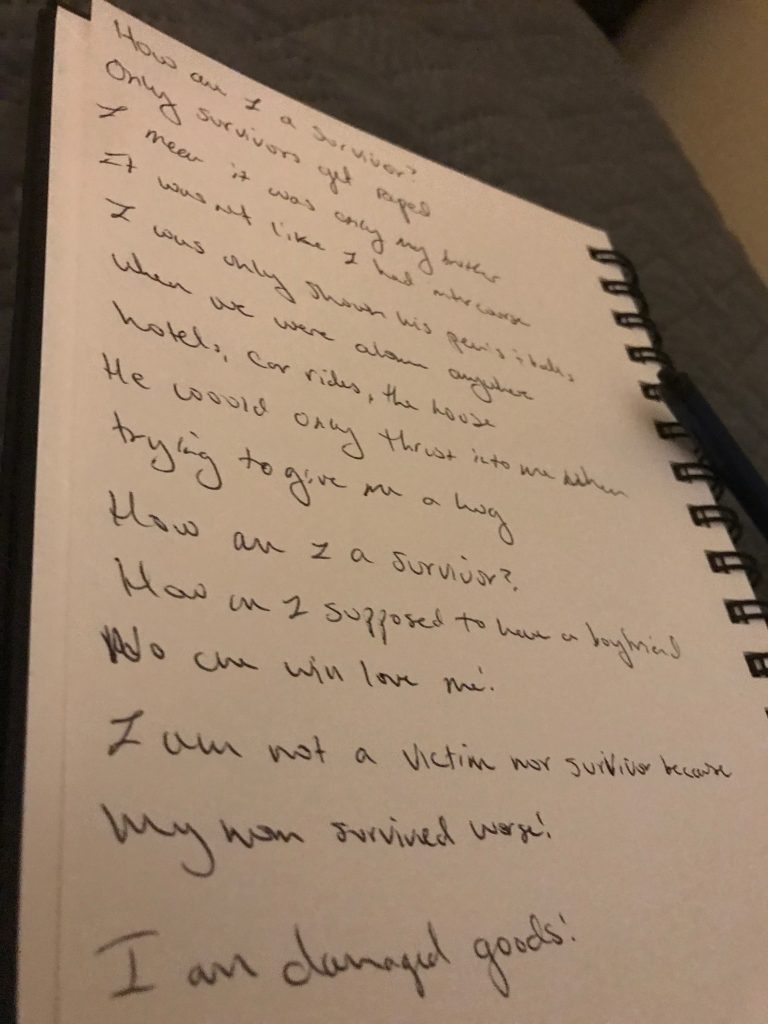 How am I a survivor?
Only survivors get raped
I mean it was only my brother
It was not like I had intercourse
I was only shown his penis & balls,
when we were alone anywhere
hotels, car rides, the house
He would only thrust into me when
trying to give me a hug
How am I a survivor?
How am I supposed to have a boyfriend
No one will love me!
I am not a victim nor survivor because
My mom survived worse!
I am damaged goods!